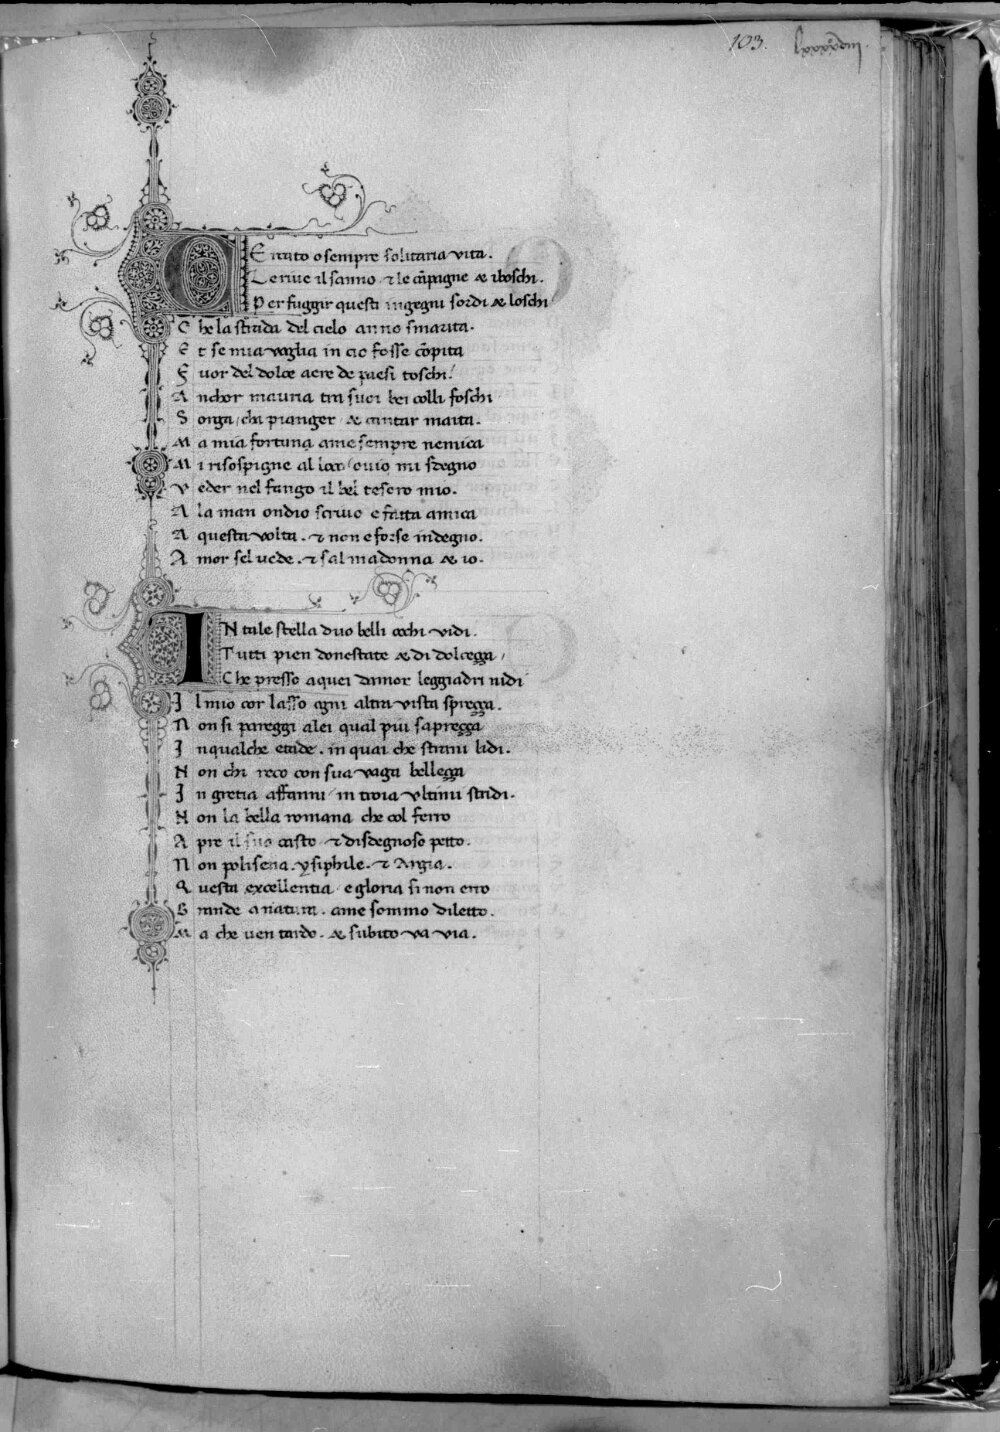 103. lxxxxviii.
CErcato o sempre solitaria vita.
Le rive il sanno · & le cāpagne & i boschi.
Per fuggir questi ingegni sordi & loschi
Che la strada del cielo anno smarita.
Et se mia voglia in cio fosse cōpita
Fuor del dolce aere de paesi toschi/
Anchor mauria tra suoi bei colli foschi
Sorga/chi pianger & cantar maita.
Ma mia fortuna ame sempre nemica
Mi risospigne al loco/ovio mi sdegno
Veder nel fango il bel tesoro mio.
Ala man ondio scrivo e fatta amica
A questa volta. & non e forse indegno.
Amor sel vede. & sal madonna & io.
IN tale stella duo belli occhi vidi.
Tutti pien donestate & di dolceçça/
Che presso a quei damor leggiadri nidi
Il mio cor lasso ogni altra vista spreçça.
Non si pareggi a lei qual piu sapreçça
In qualche etade. in quai che strani lidi.
Non chi reco con sua vaga belleçça
In gretia affanni/in troia vltimi stridi.
Non la bella romana che col ferro
Apre il suo casto & disdegnoso petto.
Non polisena. ysiphile. & Argia.
Questa excellentia/e gloria si non erro
Grande a natura. ame sommo diletto.
Ma che ven tardo. & subito va via.